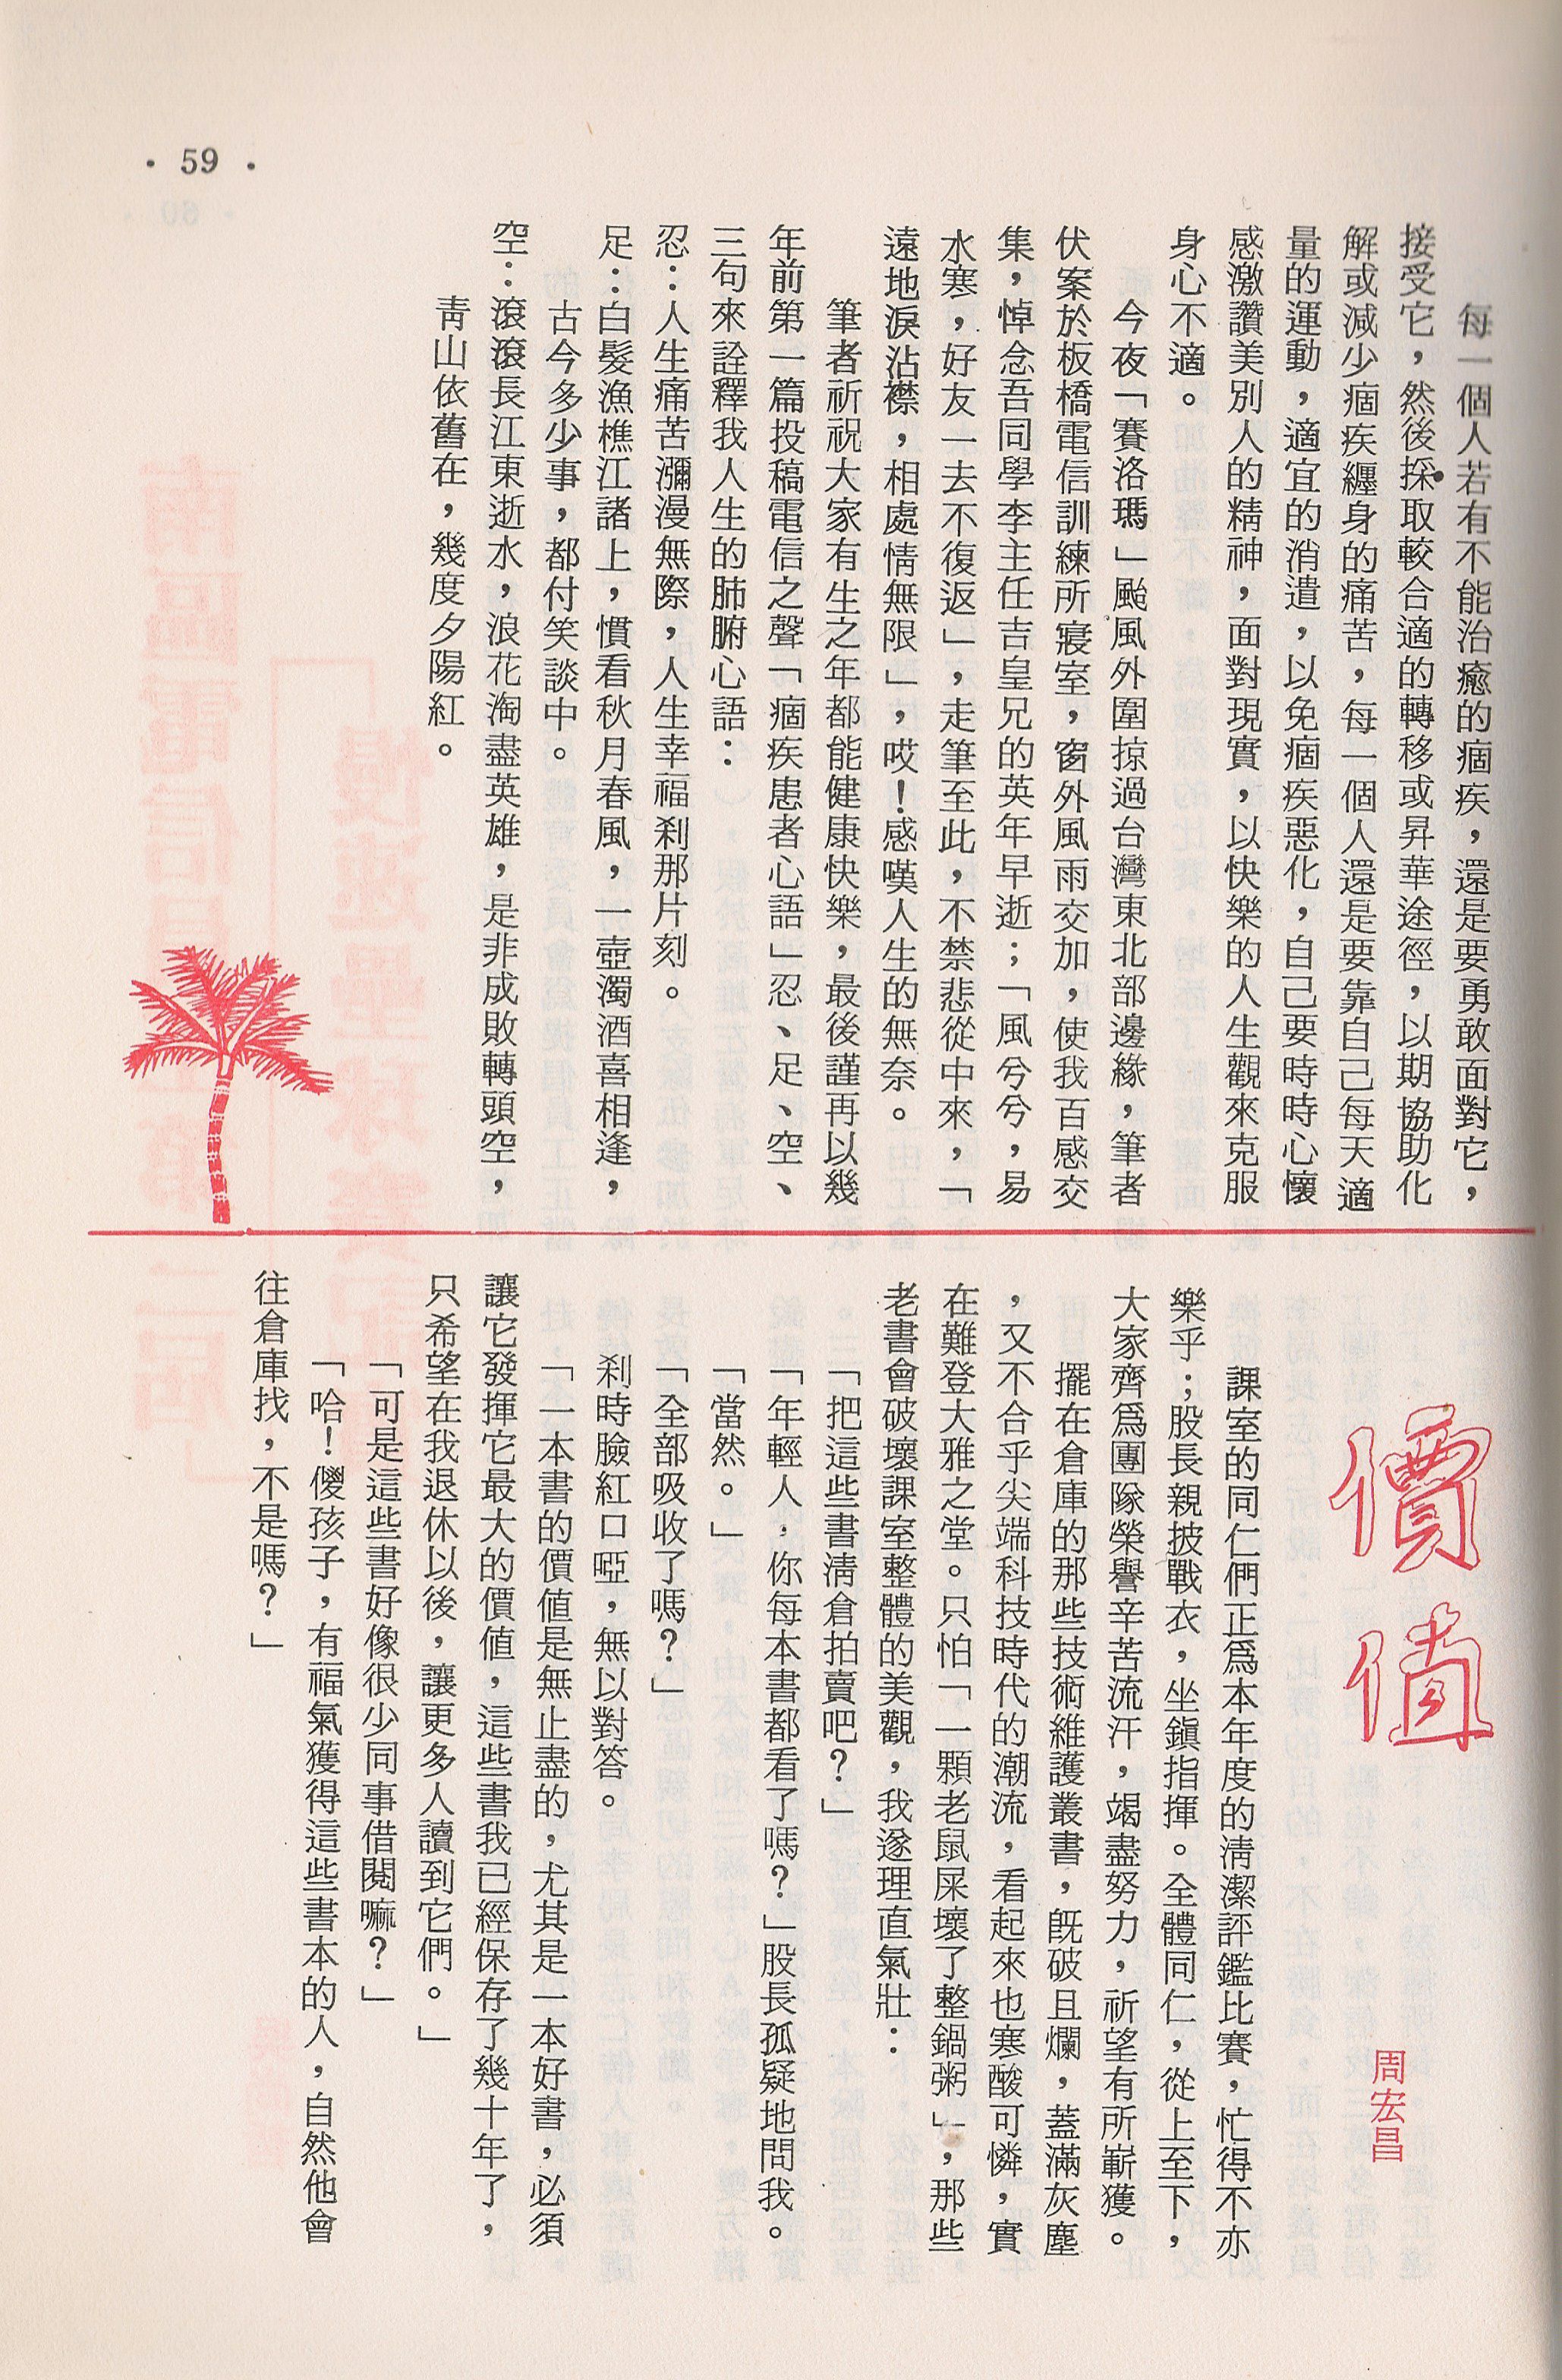 • 59 •
每一個人若有不能治癒的痼疾，還是要勇敢面對它，
接受它，然後採取較合適的轉移或昇華途徑，以期協助化
解或減少痼疾纏身的痛苦，每一個人還是要靠自己每天適
量的運動，適宜的消遣，以免痼疾惡化，自己要時時心懷
感激讚美別人的精神，面對現實，以快樂的人生觀來克服
身心不適。
今夜「賽洛瑪」颱風外圍掠過台灣東北部邊緣，筆者
伏案於板橋電信訓練所寢室，窗外風雨交加，使我百感交
集，悼念吾同學李主任吉皇兄的英年早逝；「風兮兮，易
水寒，好友一去不復返」，走筆至此，不禁悲從中來，「
遠地淚沾襟，相處情無限」，哎！感嘆人生的無奈。
筆者祈祝大家有生之年都能健康快樂，最後謹再以幾
年前第一篇投稿電信之聲「痼疾患者心語」忍、足、空、
三句來詮釋我人生的肺腑心語：
忍：人生痛苦瀰漫無際，人生幸福剎那片刻。
足：白髮漁樵江諸上，慣看秋月春風，一壺濁酒喜相逢，
古今多少事，都付笑談中。
空：滾滾長江東逝水，浪花淘盡英雄，是非成敗轉頭空，
靑山依舊在，幾度夕陽紅。
價值
周宏昌
課室的同仁們正爲本年度的淸潔評鑑比賽，忙得不亦
樂乎；股長親披戰衣，坐鎭指揮。全體同仁，從上至下，
大家齊爲團隊榮譽辛苦流汗，竭盡努力，祈望有所嶄獲。
擺在倉庫的那些技術維護叢書，旣破且爛，蓋滿灰塵
，又不合乎尖端科技時代的潮流，看起來也寒酸可憐，實
在難登大雅之堂。只怕「一顆老鼠屎壞了整鍋粥」，那些
老書會破壞課室整體的美觀，我遂理直氣壯：
「把這些書淸倉拍賣吧？」
「年輕人，你每本書都看了嗎？」股長孤疑地問我。
「當然。」
「全部吸收了嗎？」
剎時臉紅口啞，無以對答。
「一本書的價值是無止盡的，尤其是一本好書，必須
讓它發揮它最大的價值，這些書我已經保存了幾十年了，
只希望在我退休以後，讓更多人讀到它們。」
「可是這些書好像很少同事借閱嘛？」
「哈！儍孩子，有福氣獲得這些書本的人，自然他會
往倉庫找，不是嗎？」